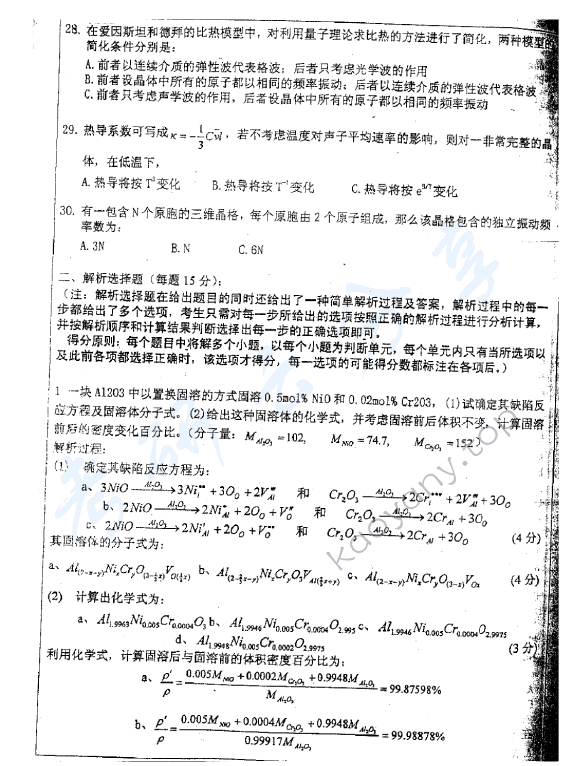 28. 在爱因斯坦和德拜的比热模型中，对利用量子理论求比热的方法进行了简化，两种模型的
简化条件分别是：
A. 前者以连续介质的弹性波代表格波；后者只考虑光学波的作用
B. 前者设晶体中所有的原子都以相同的频率振动；后者以连续介质的弹性波代表格波
C. 前者只考虑声学波的作用，后者设晶体中所有的原子都以相同的频率振动
29. 热导系数可写成 κ = -1/3 Cv̄l，若不考虑温度对声子平均速率的影响，则对一非常完整的晶
体，在低温下，
A. 热导将按 T³变化 B. 热导将按 变化 C. 热导将按 变化
30. 有一包含 N 个原胞的三维晶格，每个原胞由 2 个原子组成，那么该晶格包含的独立振动频
率数为：
A. 3N B. N C. 6N
二、解析选择题（每题 15 分）：
（注：解析选择题在给出题目的同时还给出了一种简单解析过程及答案，解析过程中的每一
步都给出了多个选项，考生只需对每一步所给出的选项按照正确的解析过程进行分析计算，
并按解析顺序和计算结果判断选择出每一步的正确选项即可。
得分原则：每个题目中将解多个小题，以每个小题为判断单元，每个单元内只有当所选项以
及此前各项都选择正确时，该选项才得分，每一选项的可能得分数都标注在各项后。）
1 一块 Al2O3 中以置换固溶的方式固溶 0.5mol% NiO 和 0.02mol% Cr2O3，(1)试确定其缺陷反
应方程及固溶体分子式。(2)给出这种固溶体的化学式，并考虑固溶前后体积不变，计算固溶
前后的密度变化百分比。（分子量：M Al₂O₃ =102, M NiO =74.7, M Cr₂O₃ =152）
解析过程：
(1) 确定其缺陷反应方程为：
a、3NiO —Al₂O₃→ 3Ni i•• +3O O +2V Al''' 和 Cr₂O₃ —Al₂O₃→ 2Cr i••• +2V Al''' +3O O
b、2NiO —Al₂O₃→ 2Ni Al +2O O +V O 和 Cr₂O₃ —Al₂O₃→ 2Cr Al +3O O
c、2NiO —Al₂O₃→ 2Ni' Al +2O O +V O•• 和 Cr₂O₃ —Al₂O₃→ 2Cr Al +3O O (4 分)
其固溶体的分子式为：
a、Al(2-x-y)Ni x Cr y O(3-½x)V O(½x) b、Al Ni x Cr y O₃V c、Al(2-x-y)Ni x Cr y O(3-x)V Ox (4 分)
(2) 计算出化学式为：
a、Al1.9963Ni0.005Cr0.0004O3 b、Al1.9946Ni0.005Cr0.0004O2.995 c、Al1.9946Ni0.005Cr0.0004O2.9975
d、Al1.9948Ni0.005Cr0.0002O2.9975 (3 分)
利用化学式，计算固溶后与固溶前的体积密度百分比为：
a、ρ'/ρ = (0.005M NiO +0.0002M Cr₂O₃ +0.9948M Al₂O₃)/M Al₂O₃ = 99.87598%
b、ρ'/ρ = (0.005M NiO +0.0004M Cr₂O₃ +0.9948M Al₂O₃)/(0.99917M Al₂O₃) = 99.98878%
kaoyany.top